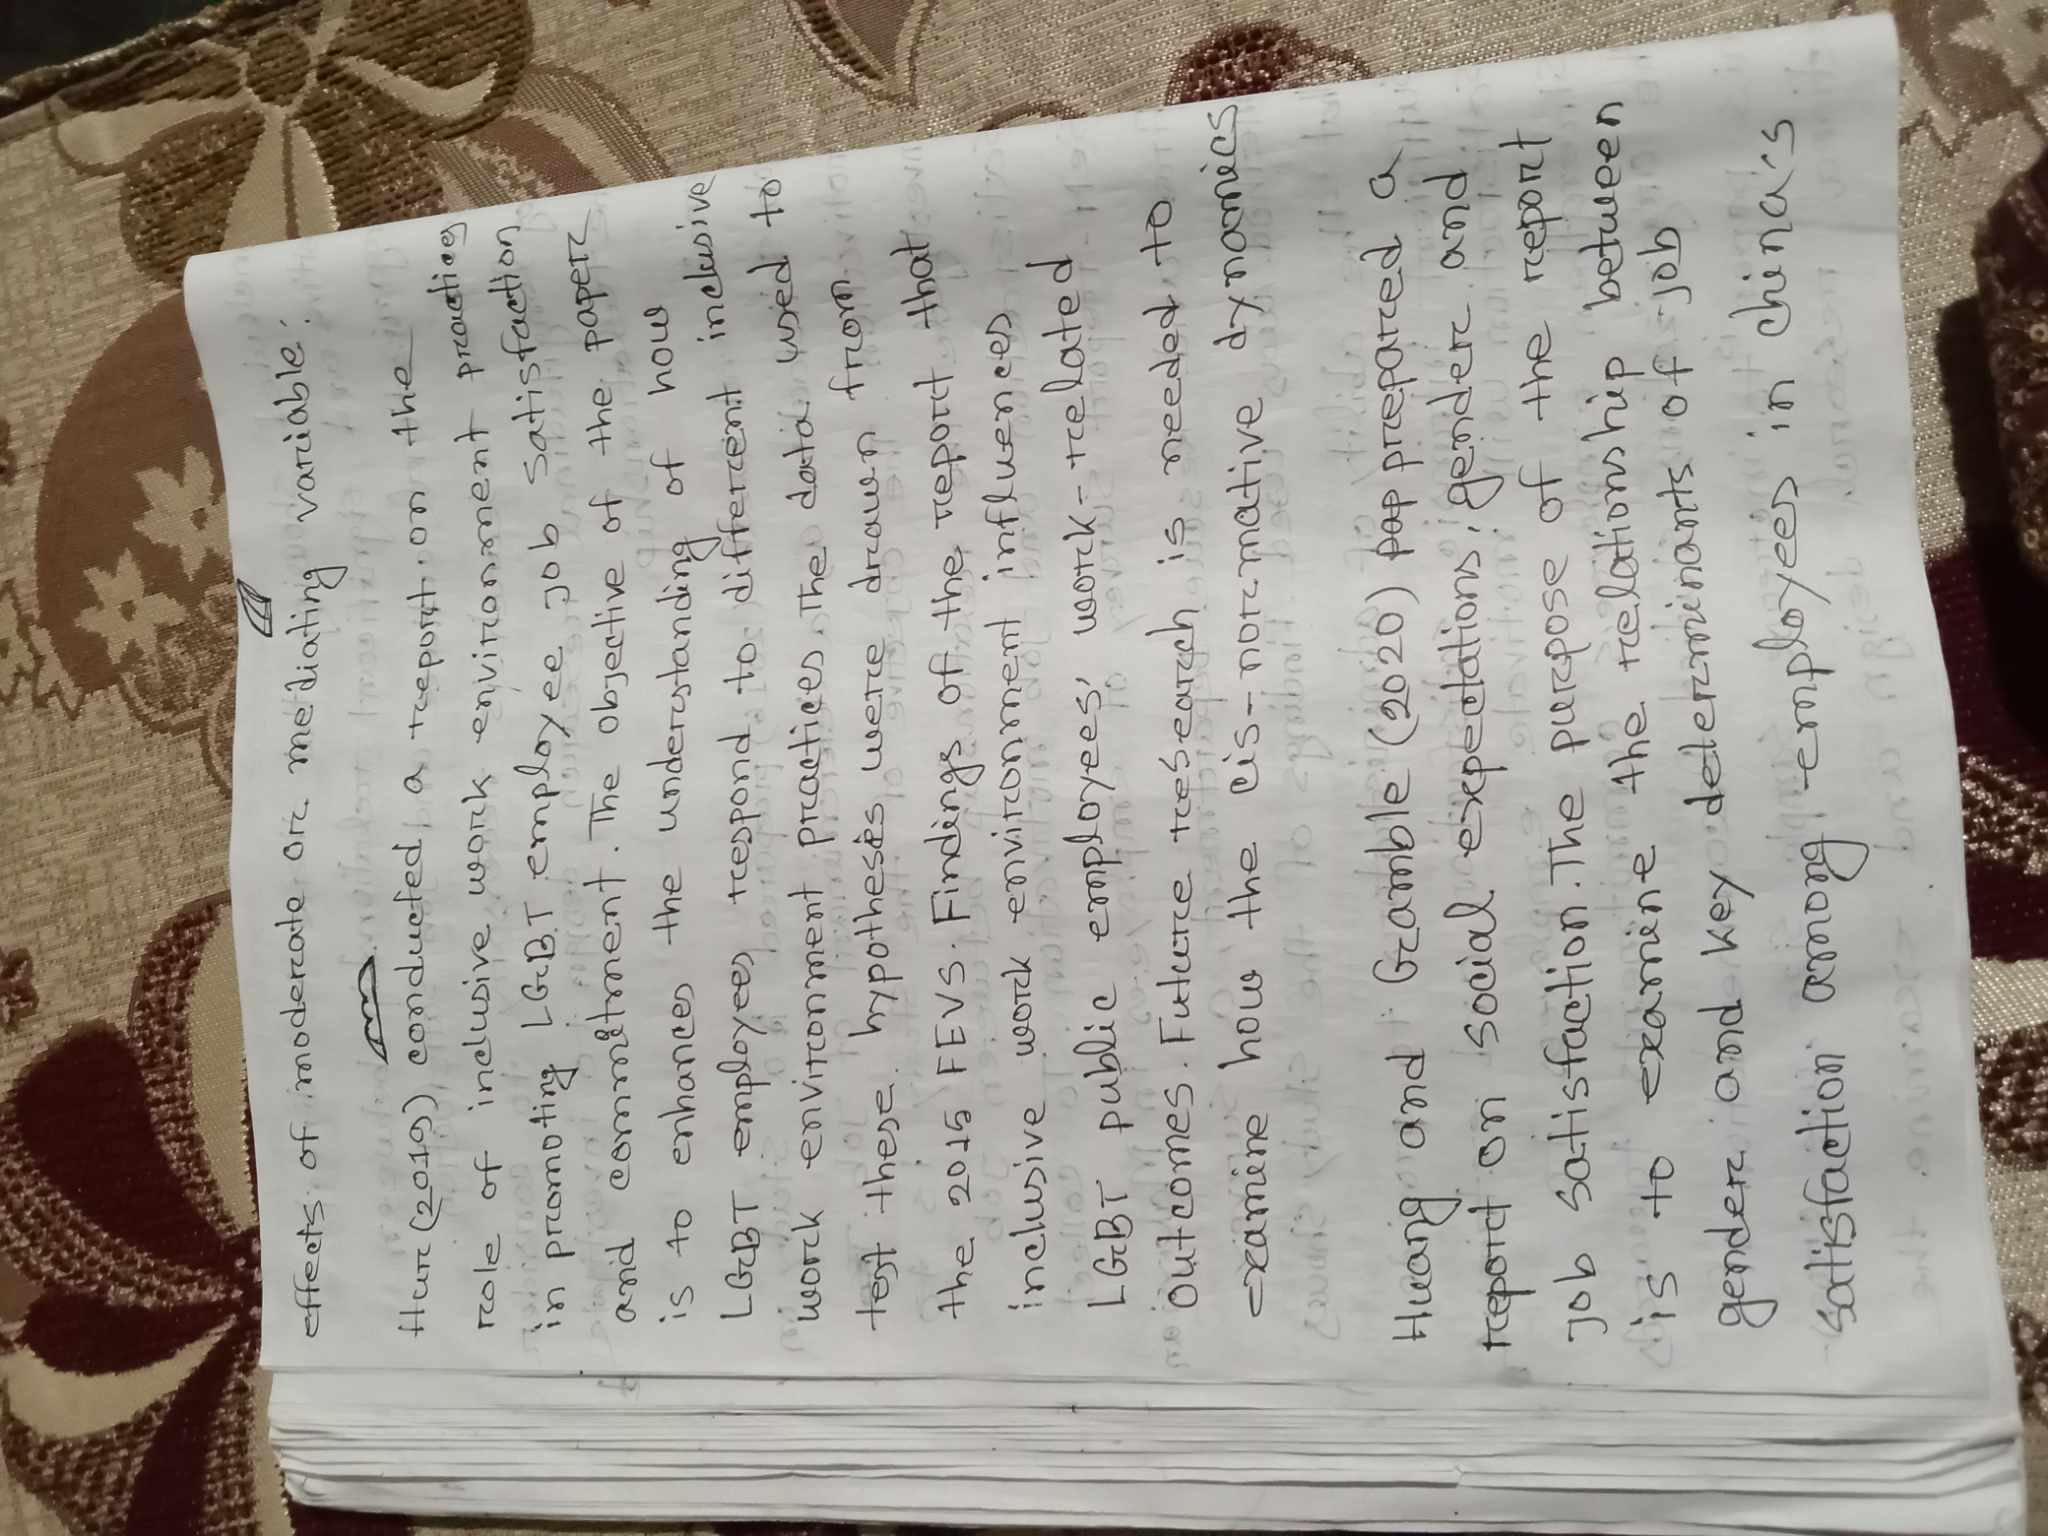 effects of moderate or mediating variable.
Hur (2019) conducted a report on the
role of inclusive work environment practices
in promoting LGBT employee job satisfaction
and commitment. The objective of the paper
is to enhances the understanding of how
LGBT employees respond to different inclusive
work environment practices. The data used to
test these hypothesis were drawn from
the 2015 FEVS. Findings of the report that
inclusive work environment influences
LGBT public employees' work-related
outcomes. Future research is needed to
examine how the cis-normative dynamics
Huang and Gamble (2020) pap prepared a
report on social expectations, gender and
job satisfaction. The purpose of the report
is to examine the relationship between
gender and key determinants of job
satisfaction among employees in china's